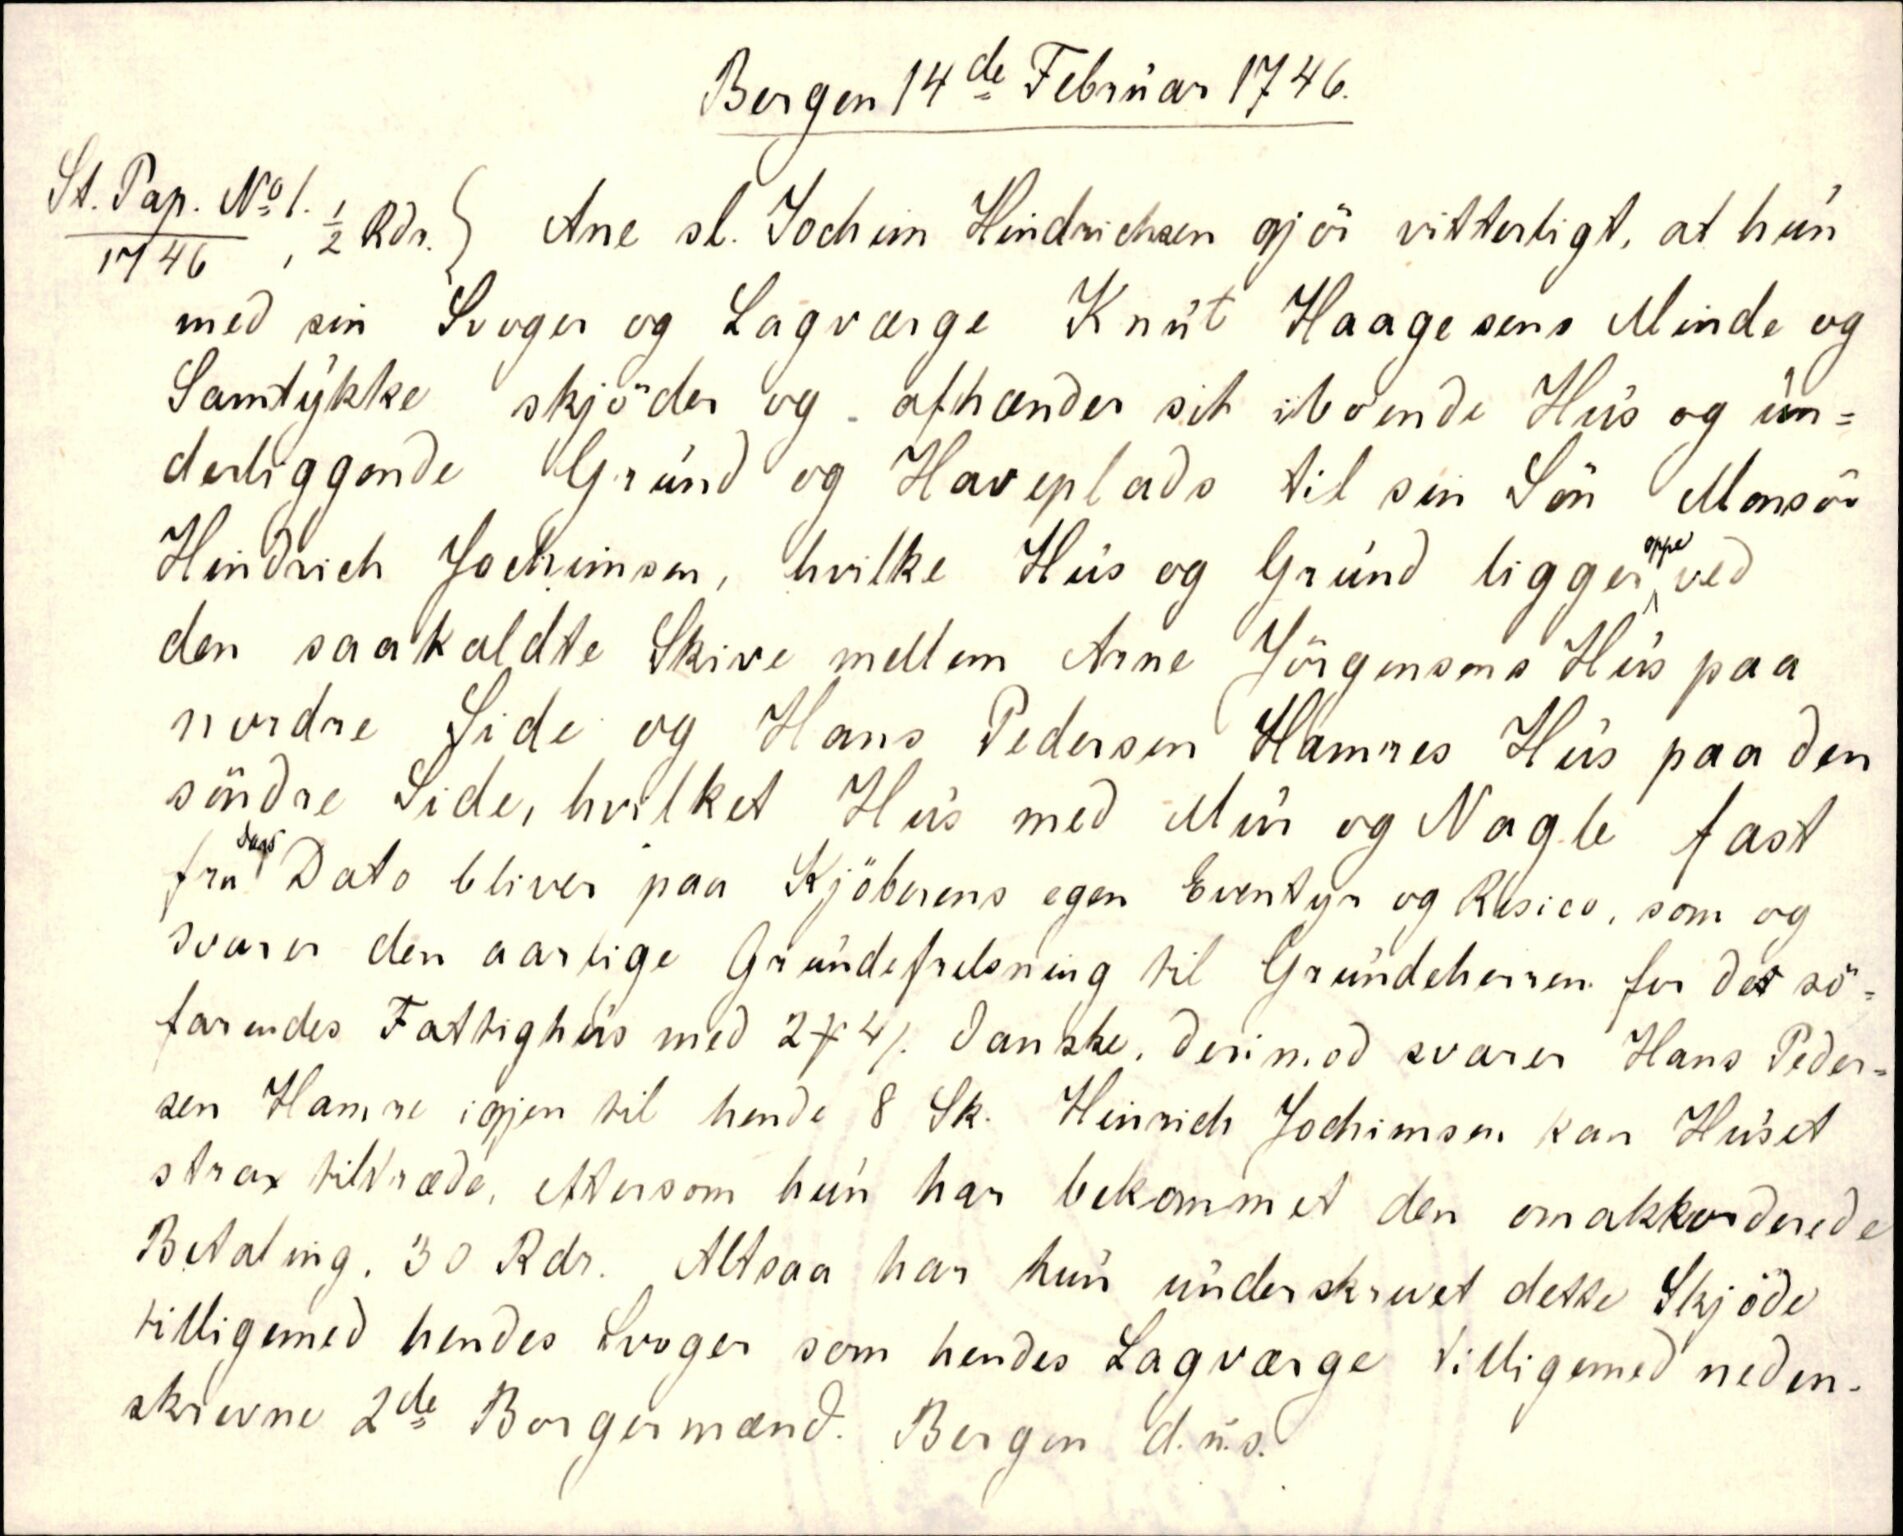 Bergen 14de Februar 1746.
St. Pap. No 1. 1/2 Rdr. } Ane sl. Jochim Hindrichsen gjör vitterligt, at hun
1746,
med sin Svoger og Lagværge Knut Haagesens Minde og
Samtykke skjöder og afhænder sit iboende Hus og un=
derliggende Grund og Haveplads til sin Sön Monsör
Hindrich Jochimsen, hvilke Hus og Grund ligger oppe ved
den saakaldte Skive mellem Arne Jörgensens Hus paa
nordre Side og Hans Pedersen Hamres Hus paa den
söndre Side, hvilket Hus med Mur og Nagle fast
fra dags Dato bliver paa Kjöberens egen Eventyr og Risico, som og
svarer den aarlige Grundefrelsning til Grundeherren for det sö=
farendes Fattighus med 2 ℳ 4 /. danske. derimod svarer Hans Peder=
sen Hamre igjen til hende 8 Sk. Heinrich Jochimsen kan Huset
strax tiltræde, eftersom hun har bekommet den omakkorderede
Betaling. 30 Rdr. Altsaa har hun underskrevet dette Skjöde
tilligemed hendes Svoger som hendes Lagværge tilligemed neden-
skrevne 2de Borgermænd. Bergen d.u.s.